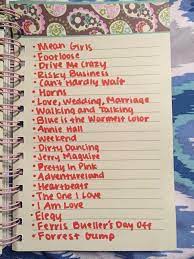 • Mean Girls
• Footloose
• Drive Me Crazy
• Risky Business
• Can't Hardly Wait
• Horns
• Love, Wedding, Marriage
• Walking and Talking
• Blue is the Warmest Color
• Annie Hall
• Weekend
• Dirty Dancing
• Jerry Maguire
• Pretty In Pink
• Adventureland
• Heartbeats
• The One I Love
• I Am Love
• Elegy
• Ferris Bueller's Day Off
• Forrest Gump